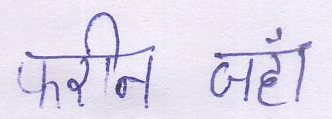 फरीन जहाँ